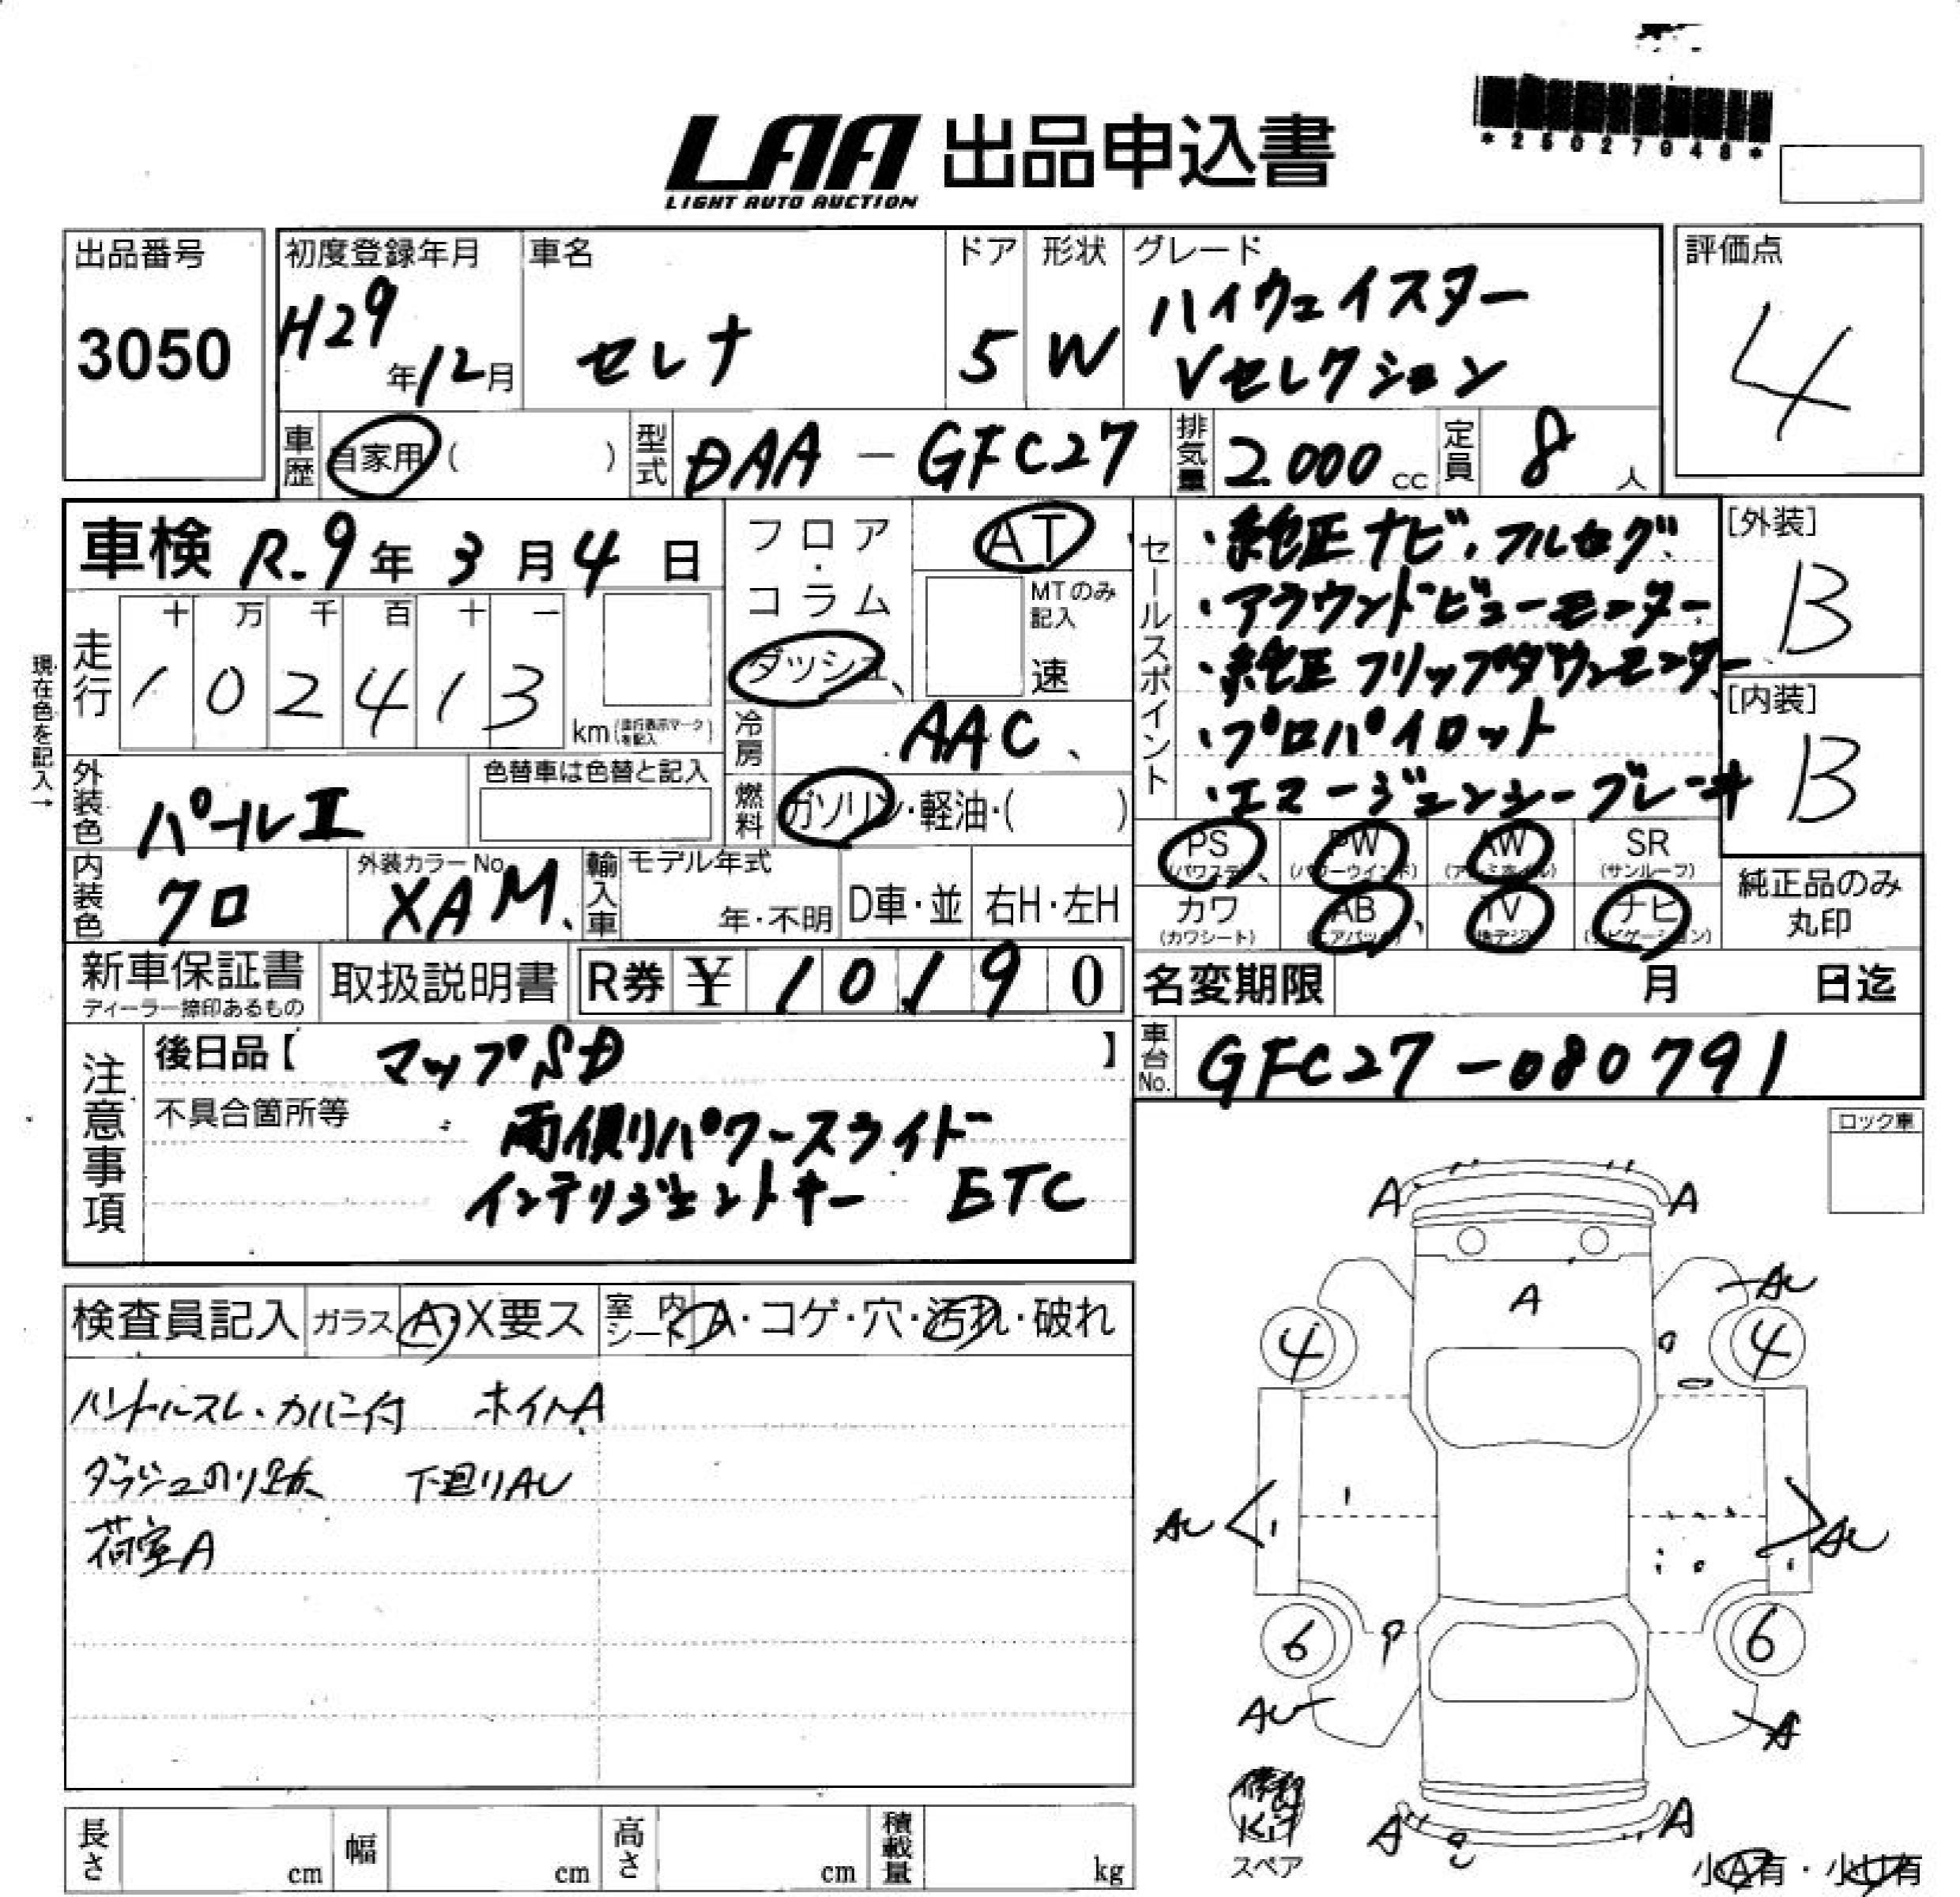 *25027048*
LAA 出品申込書
LIGHT AUTO AUCTION
出品番号
3050
初度登録年月
H29年12月
車名
セレナ
ドア
5
形状
W
グレード
ハイウェイスター
Vセレクション
評価点
4
車歴
自家用( )
型式
DAA-GFC27
排気量
2.000cc
定員
8人
車検 R.9年3月4日
走行
十 万 千 百 十 一
1 0 2 4 1 3
km(走行表示マークを記入)
現在色を記入→
フロア・コラム
ダッシュ
AT
MTのみ記入
速
冷房
AAC
燃料
ガソリン・軽油・( )
セールスポイント
・純正ナビ、フルセグ
・アラウンドビューモニター
・純正フリップダウンモニター
・プロパイロット
・エマージェンシーブレーキ
[外装]
B
[内装]
B
外装色
パールⅡ
色替車は色替と記入
内装色
クロ
外装カラーNo.
XAM
輸入車
モデル年式
年・不明
D車・並
右H・左H
PS
(パワステ)
PW
(パワーウインド)
AW
(アルミホイル)
SR
(サンルーフ)
カワ
(カワシート)
AB
(エアバック)
TV
(地デジ)
ナビ
(ナビゲーション)
純正品のみ
丸印
新車保証書
ディーラー捺印あるもの
取扱説明書
R券 ¥ 10190
名変期限 月 日迄
車台No.
GFC27-080791
注意事項
後日品【 マップSD 】
不具合箇所等
両側パワースライド
インテリジェントキー ETC
ロック車
検査員記入
ガラス
A・X要ス
室内シート
A・コゲ・穴・汚れ・破れ
ハンドルスレ、カバー付 ホイルA
ダッシュのり跡 下廻りAU
荷室A
A A
A
AU
4 4
AU AU
6 6
AU A
A A
修理Kit
スペア
小A有・小U有
長さ cm
幅 cm
高さ cm
積載量 kg